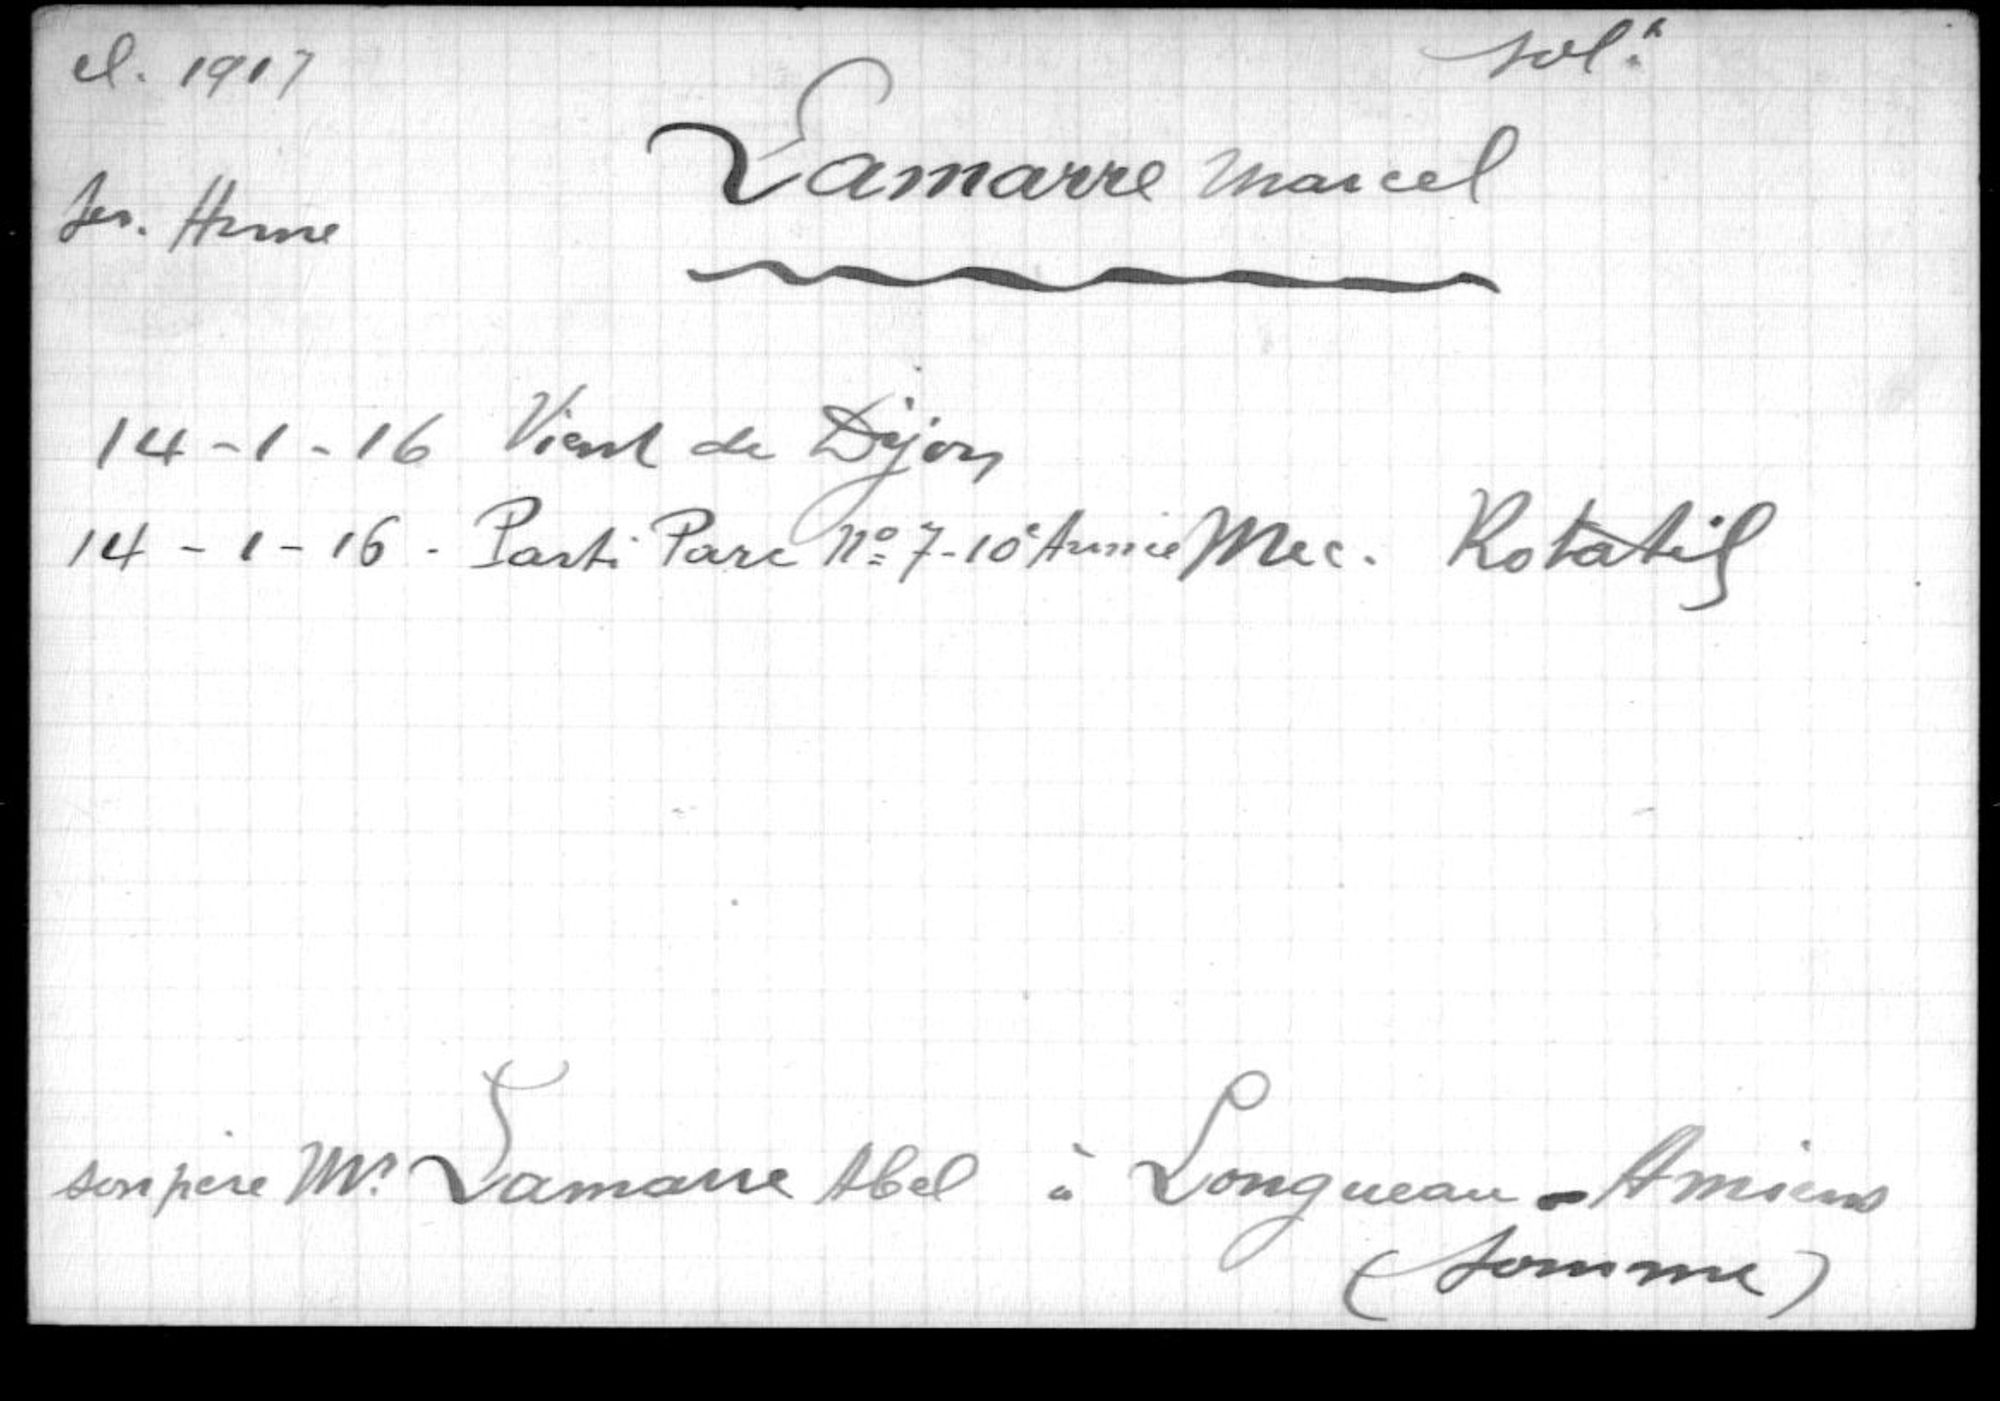 cl. 1917
solt
Lamarre Marcel
Ser. Armé
14-1-16 Vient de Dijon
14-1-16. Parti Parc No 7-10e Armée Mec. Rotatif
son père Mr Lamarre Abel à Longueau - Amiens
(Somme)